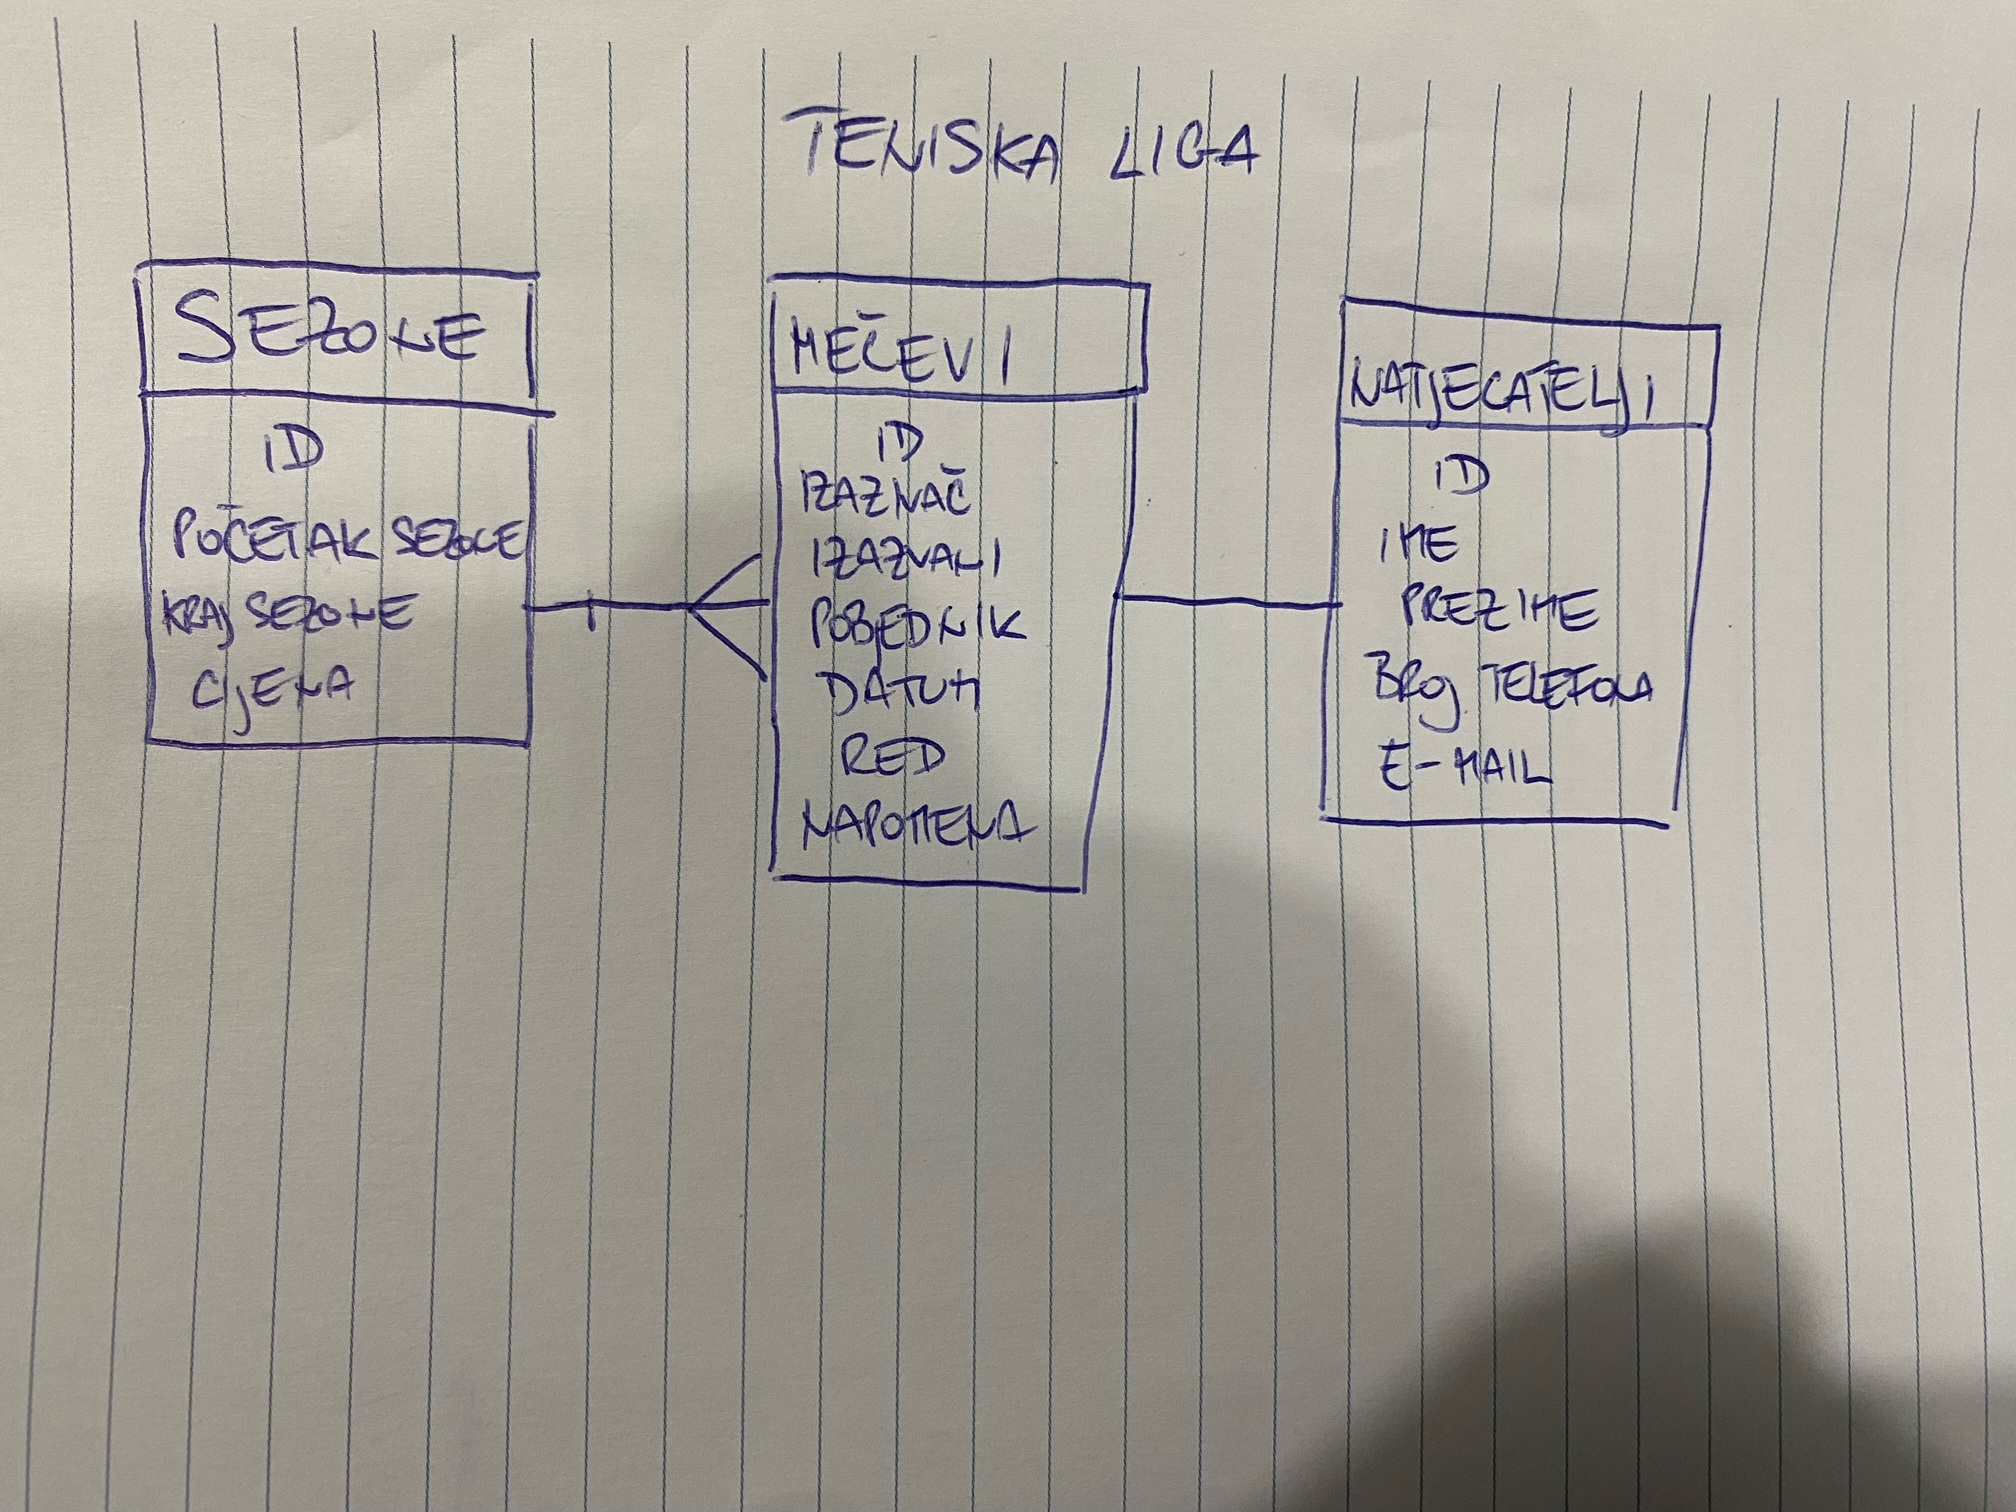 TENISKA LIGA
SEZONE
ID
POČETAK SEZONE
KRAJ SEZONE
CIJENA
MEČEVI
ID
IZAZNAČ
IZAZVANI
POBJEDNIK
DATUM
RED
NAPOMENA
NATJECATELJI
ID
IME
PREZIME
BROJ TELEFONA
E-MAIL